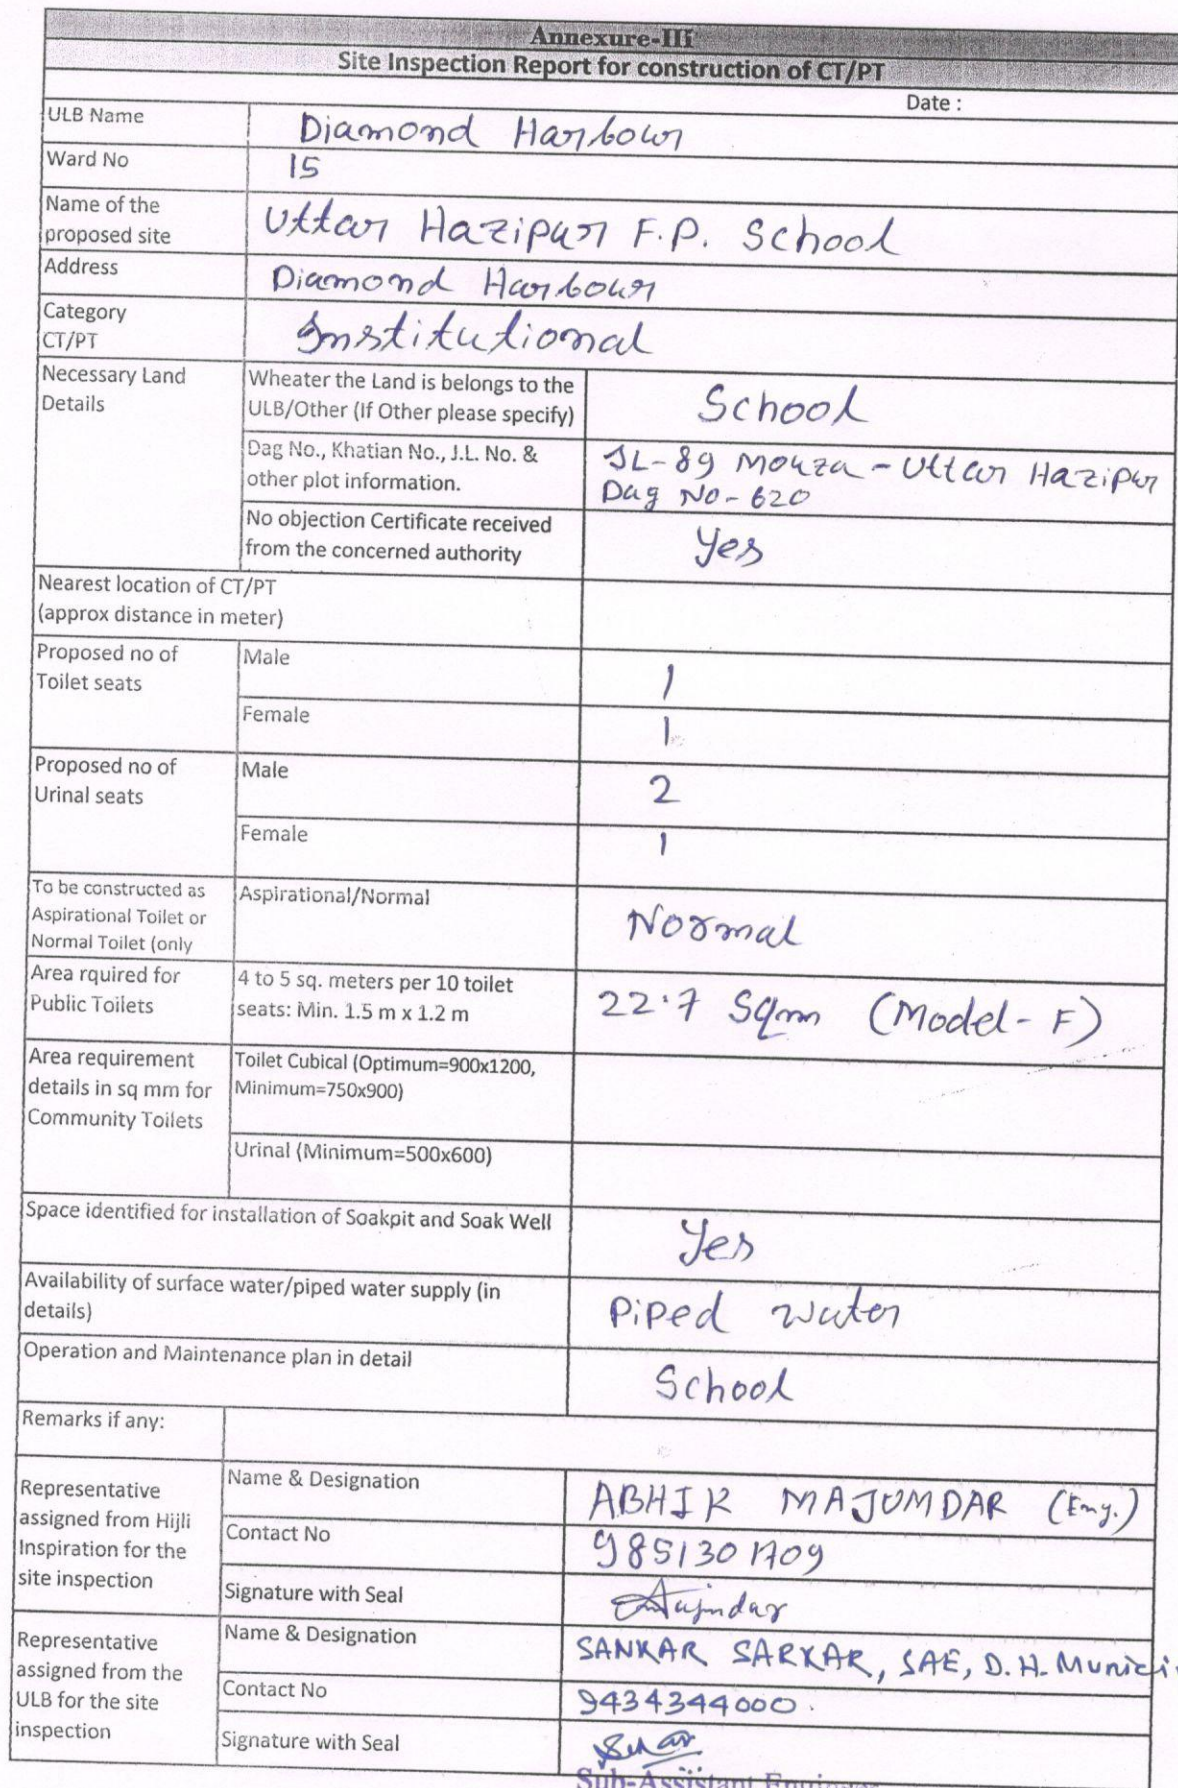 Annexure-III
Site Inspection Report for construction of CT/PT
Date :
ULB Name Diamond Harbour
Ward No 15
Name of the
proposed site Uttar Hazipur F.P. School
Address Diamond Harbour
Category
CT/PT Institutional
Necessary Land
Details
Wheater the Land is belongs to the
ULB/Other (If Other please specify) School
Dag No., Khatian No., J.L. No. &
other plot information.
JL-89 Mouza - Uttar Hazipur
Dag No - 620
No objection Certificate received
from the concerned authority Yes
Nearest location of CT/PT
(approx distance in meter)
Proposed no of
Toilet seats
Male 1
Female 1
Proposed no of
Urinal seats
Male 2
Female 1
To be constructed as
Aspirational Toilet or
Normal Toilet (only
Aspirational/Normal Normal
Area rquired for
Public Toilets
4 to 5 sq. meters per 10 toilet
seats: Min. 1.5 m x 1.2 m
22.7 Sqm (Model-F)
Area requirement
details in sq mm for
Community Toilets
Toilet Cubical (Optimum=900x1200,
Minimum=750x900)
Urinal (Minimum=500x600)
Space identified for installation of Soakpit and Soak Well Yes
Availability of surface water/piped water supply (in
details) Piped water
Operation and Maintenance plan in detail School
Remarks if any:
Representative
assigned from Hijli
Inspiration for the
site inspection
Name & Designation ABHIK MAJUMDAR (Eng.)
Contact No 9851301709
Signature with Seal
Representative
assigned from the
ULB for the site
inspection
Name & Designation SANKAR SARKAR, SAE, D.H. Munici
Contact No 9434344000.
Signature with Seal
Sub-Assistant Engineer